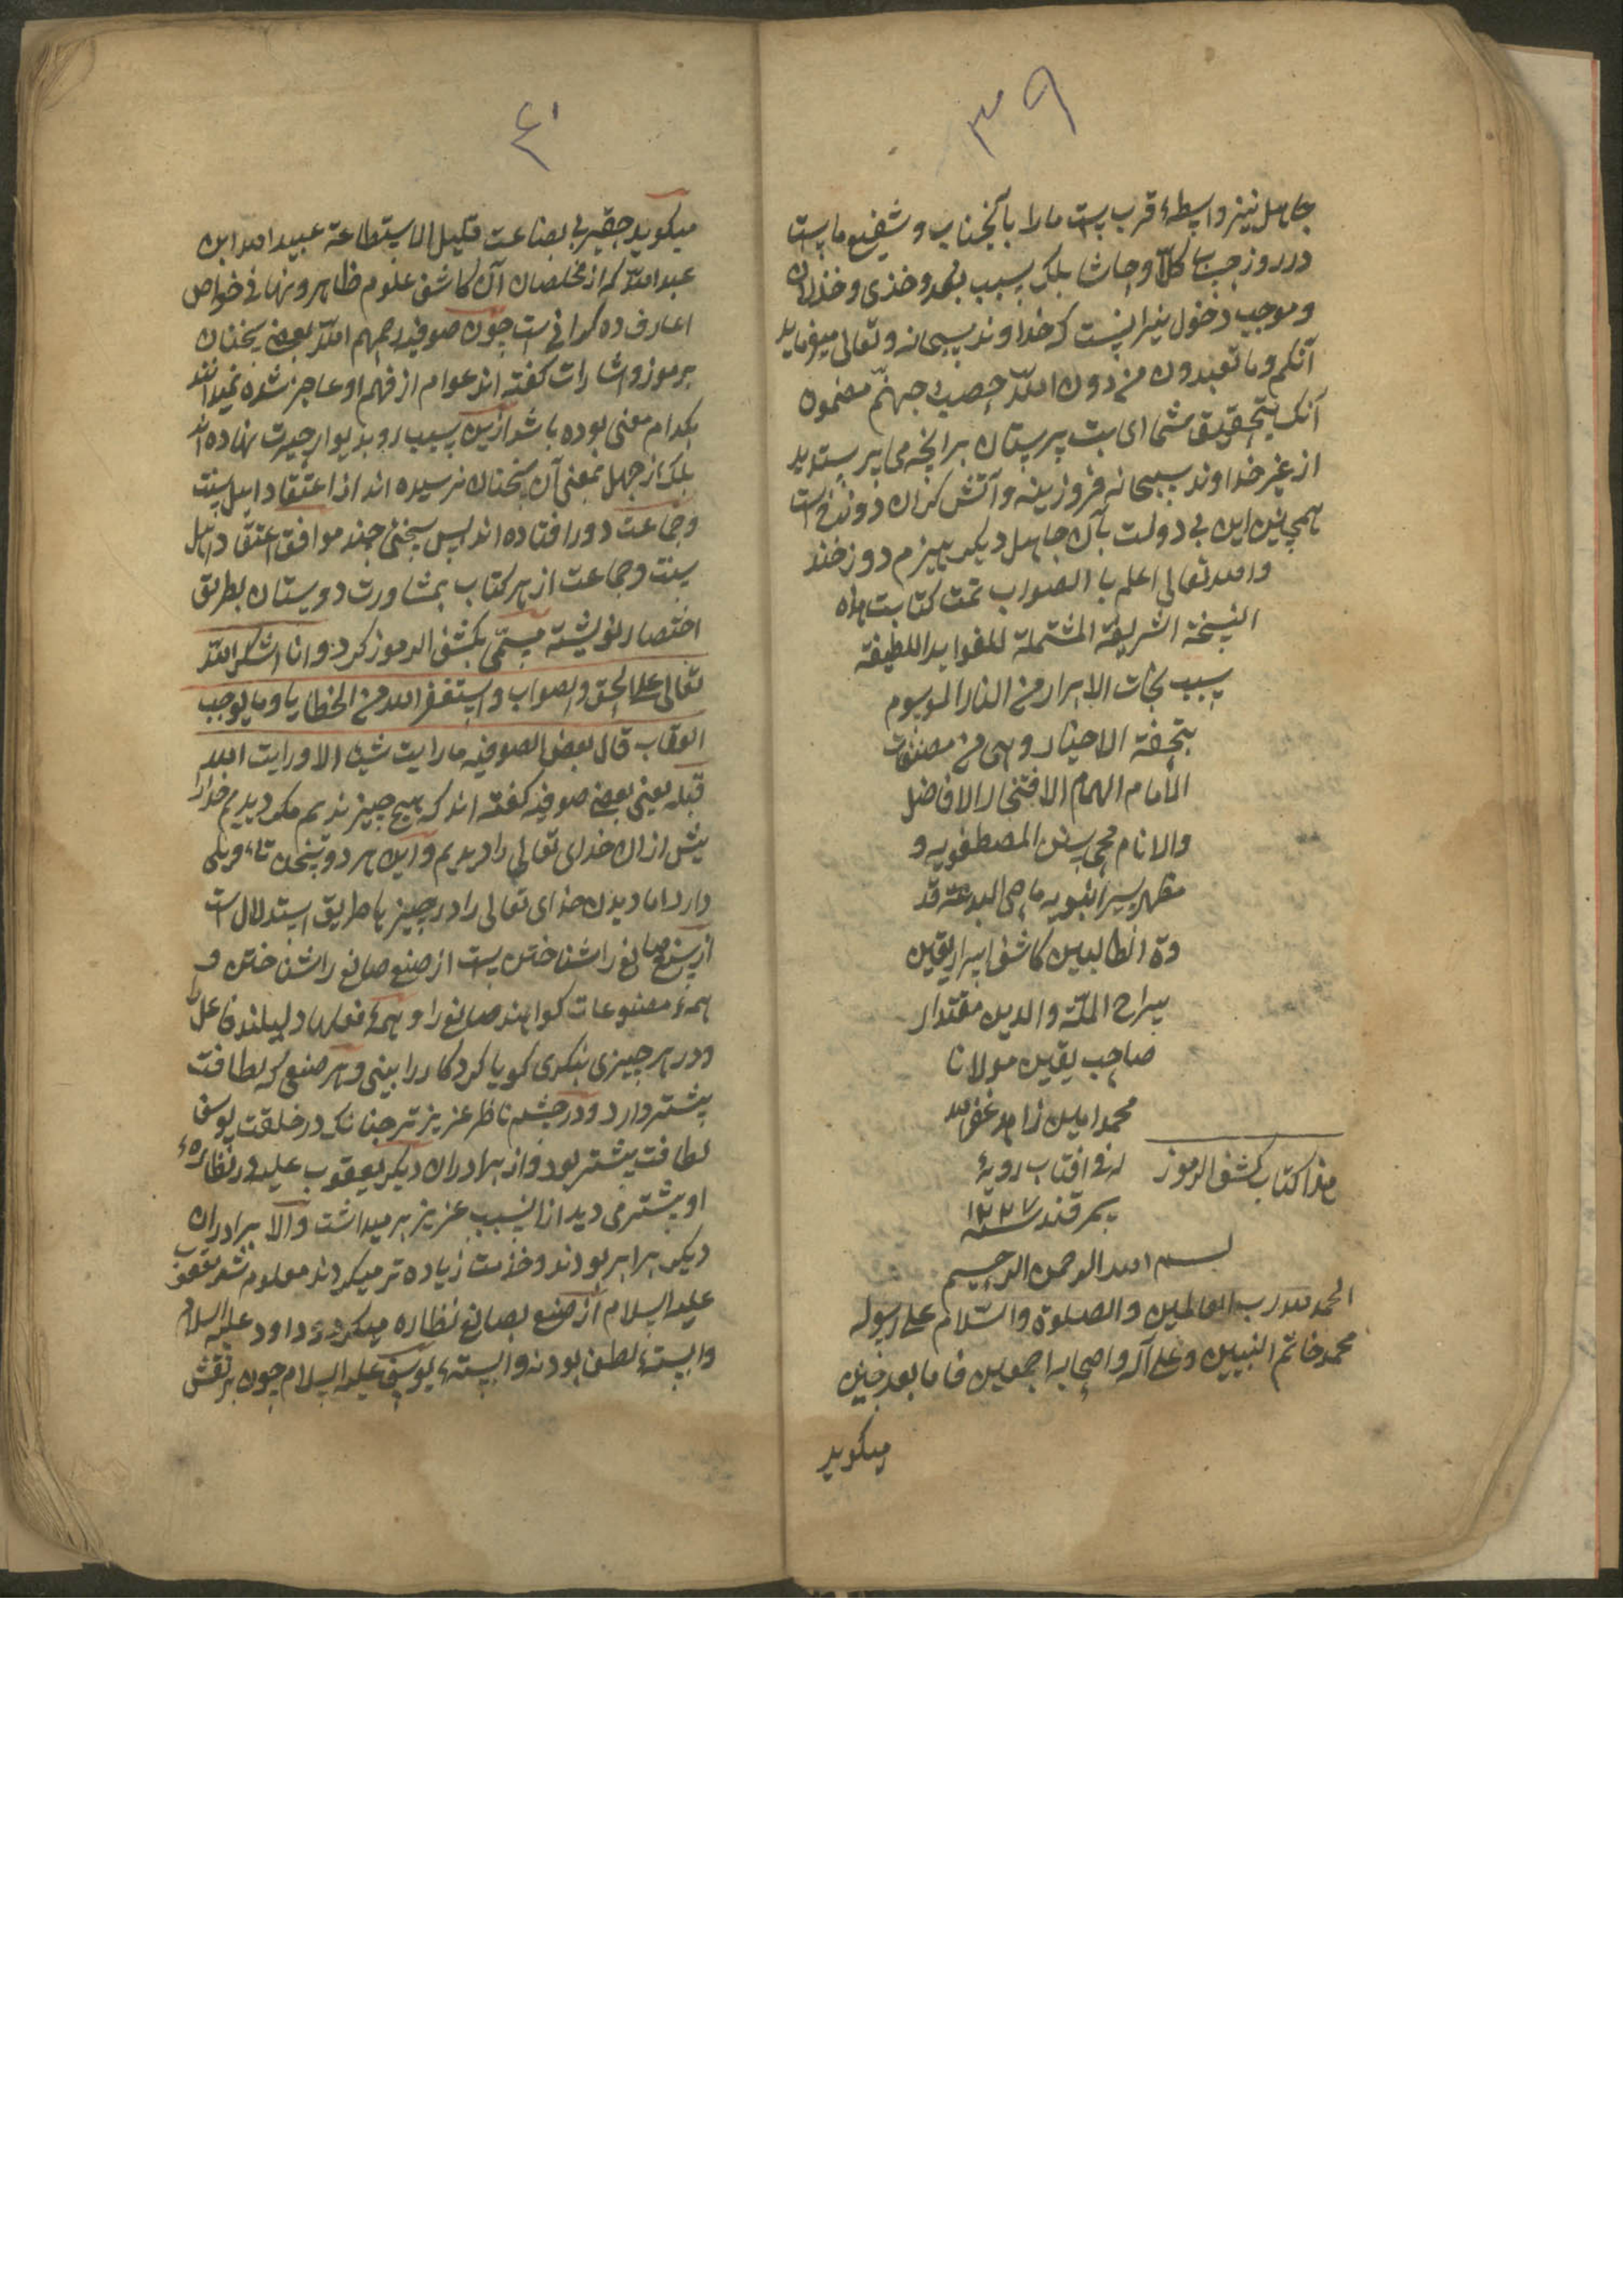 ٣٩
جاهل نیز واسطهٔ قرب ست مارا بآنجناب و شفیع ماست
در روز حساب کلّا و حاشا بلکه بسبب بعد و خذی و خذلان
و موجب دخول نیرانست که خداوند سبحانه و تعالی میفرماید
آنکم وما تعبدون من دون اللّه حصب جهنّم مضمون
آنکه بتحقیق شما ای بت پرستان برانچه می پرستدید
از غیر خداوند سبحانه فروزینه و آتش کران دوزخ است
همچنین این بی دولت بآن جاهل دیکر هیزم دوزخند
والله تعالی اعلم با الصواب تمت کتابت هذه
النسخة الشریفة المشتملة للفواید اللطیفة
سبب نجات الابرار من النار الموسوم
بتحفة الاحیار وهی من مصنفات
الامام الهمام الافتخار الافاضل
والانام محی سنن المصطفویه و
مظهر سیر النبویه ماحی البدعة قد
وة الطالبین کاشف اسرار یقین
سراج الملة والدین مقتدار
صاحب یقین مولانا
محمد امین زاهد غفر الله
له فی افتاب رویهٔ
سمرقند سنه ١٢٢٧
هذا کتاب کشف الرموز
بسم الله الرحمن الرحیم
الحمد لله رب العالمین والصلوة والسّلام علی رسوله
محمد خاتم النبیین وعلی آله واصحابه اجمعین فاما بعد چنین
میکوید
٤٠
میکوید حقیر بی بضاعت قلیل الاستطاعة عبید الله ابن
عبد اللّه که از مخلصان آن کاشف علوم ظاهر و نهانی خواص
اعارف ده کوانی ست چون صوفیه رحمهم اللّه بعضی سخنان
برموز و اشارات کفته اند عوام از فهم او عاجز شده نمیدانند
بکدام معنی بوده باشد ازین سبب رو بدیوار حیرت نهاده اند
بلکه از جهل بمعنی آن سخنان نرسیده اند از اعتقاد اهل سنت
و جماعت دور افتاده اند پس سخنی چند موافق اعتقاد اهل
سنت و جماعت از هر کتاب بمشاورت دوستان بطریق
اختصار نوشته مسمّی بکشف الرموز کرد و انا اشکر اللّه
تعالی علی الحق والصواب واستغفر الله من الخطایا وما یوجب
العقاب قال بعض الصوفیه ما رایت شیئا الا ورایت الله
قبله یعنی بعضی صوفیه کفته اند که هیچ چیز ندیدیم مکر دیدیم خدارا
پیش ازان خدای تعالی را دیدیم و این هر دو سخن تاءویلی
دارد اما دیدن خدای تعالی را در چیزها طریق استدلال است
از صنع صانع را شناختن ست از صنع صانع را شناختن و
همهٔ مصنوعات کواهند صانع را و همهٔ فعلها دلیلند فاعل را
و در هر چیزی بنکری کویا کردکار را بینی و هر صنعی که لطافت
بیشتر دارد و در چشم ناظر عزیز تر چنانکه در خلقت یوسف
لطافت بیشتر بود و از برادران دیکر یعقوب علیه در نظارهٔ
او بیشتر می دید ازانسبب عزیز بر میداشت و الا برادران
دیکر برابر بودند و خدمت زیاده تر میکردند معلوم شد یعقوب
علیه السلام از صنع بصانع نظاره میکرد و داود علیه السلام
وابستهٔ لطف بود نه وابستهٔ یوسف علیه السلام چون بر نقش